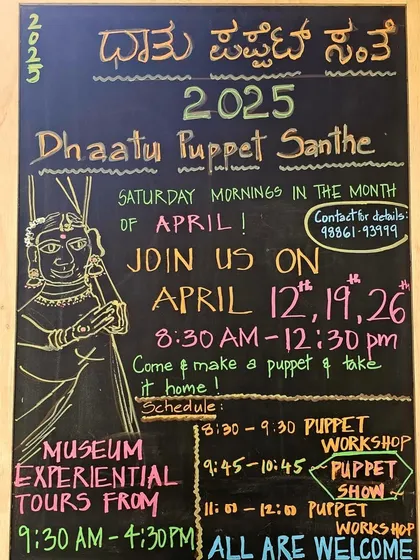 2025
ಧಾತು ಪಪೆಟ್ ಸಂತೆ
2025
Dhaatu Puppet Santhe
SATURDAY MORNINGS IN THE MONTH
OF APRIL!
Contact for details:
98861-93999
JOIN US ON
APRIL 12th, 19th, 26th
8:30 AM - 12:30 pm
Come & make a puppet & take
it home!
Schedule:
8:30 - 9:30 PUPPET
WORKSHOP
9:45 - 10:45 - PUPPET
SHOW
11:00 - 12:00 PUPPET
WORKSHOP
MUSEUM
EXPERIENTIAL
TOURS FROM
9:30 AM - 4:30PM
ALL ARE WELCOME